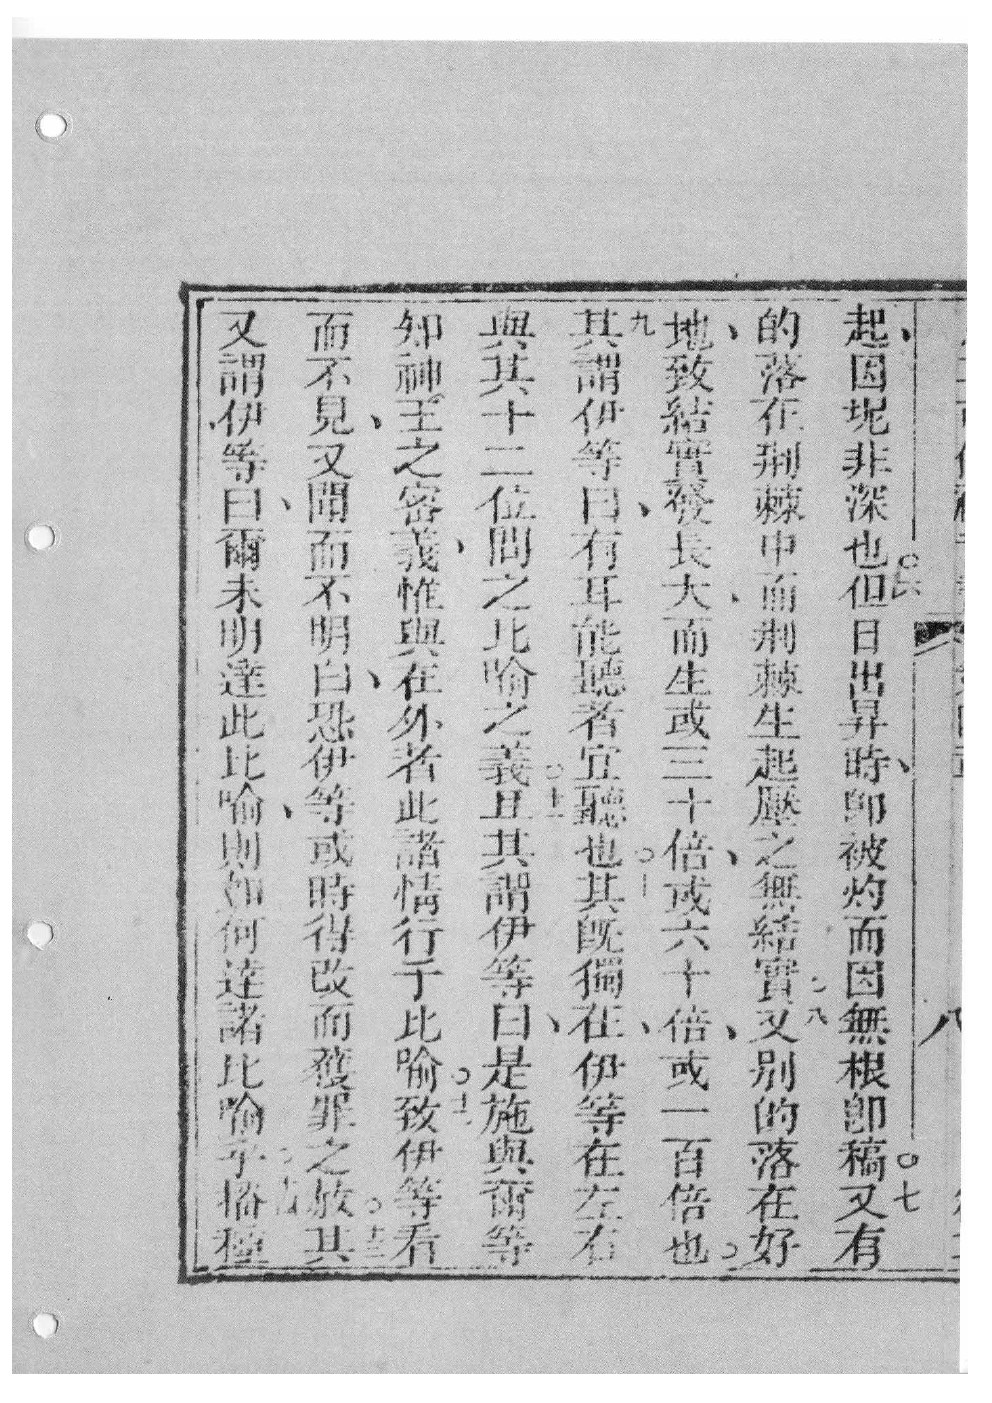 起因坭非深也但日出昇時卽被灼而因無根卽稿又有
六
七
的落在荆棘中而荆棘生起壓之無結實又别的落在好
八
地致結實發長大而生或三十倍或六十倍或一百倍也
九
其謂伊等曰有耳能聽者宜聽也其旣獨在伊等在左右
十
與其十二位問之比喻之義且其謂伊等曰是施與爾等
十一
知神王之密義惟與在外者此諸情行于比喻致伊等看
十二
而不見又聞而不明白恐伊等或時得改而獲罪之赦其
十三
又謂伊等曰爾未明達此比喻則如何達諸比喻乎播種
十四
八